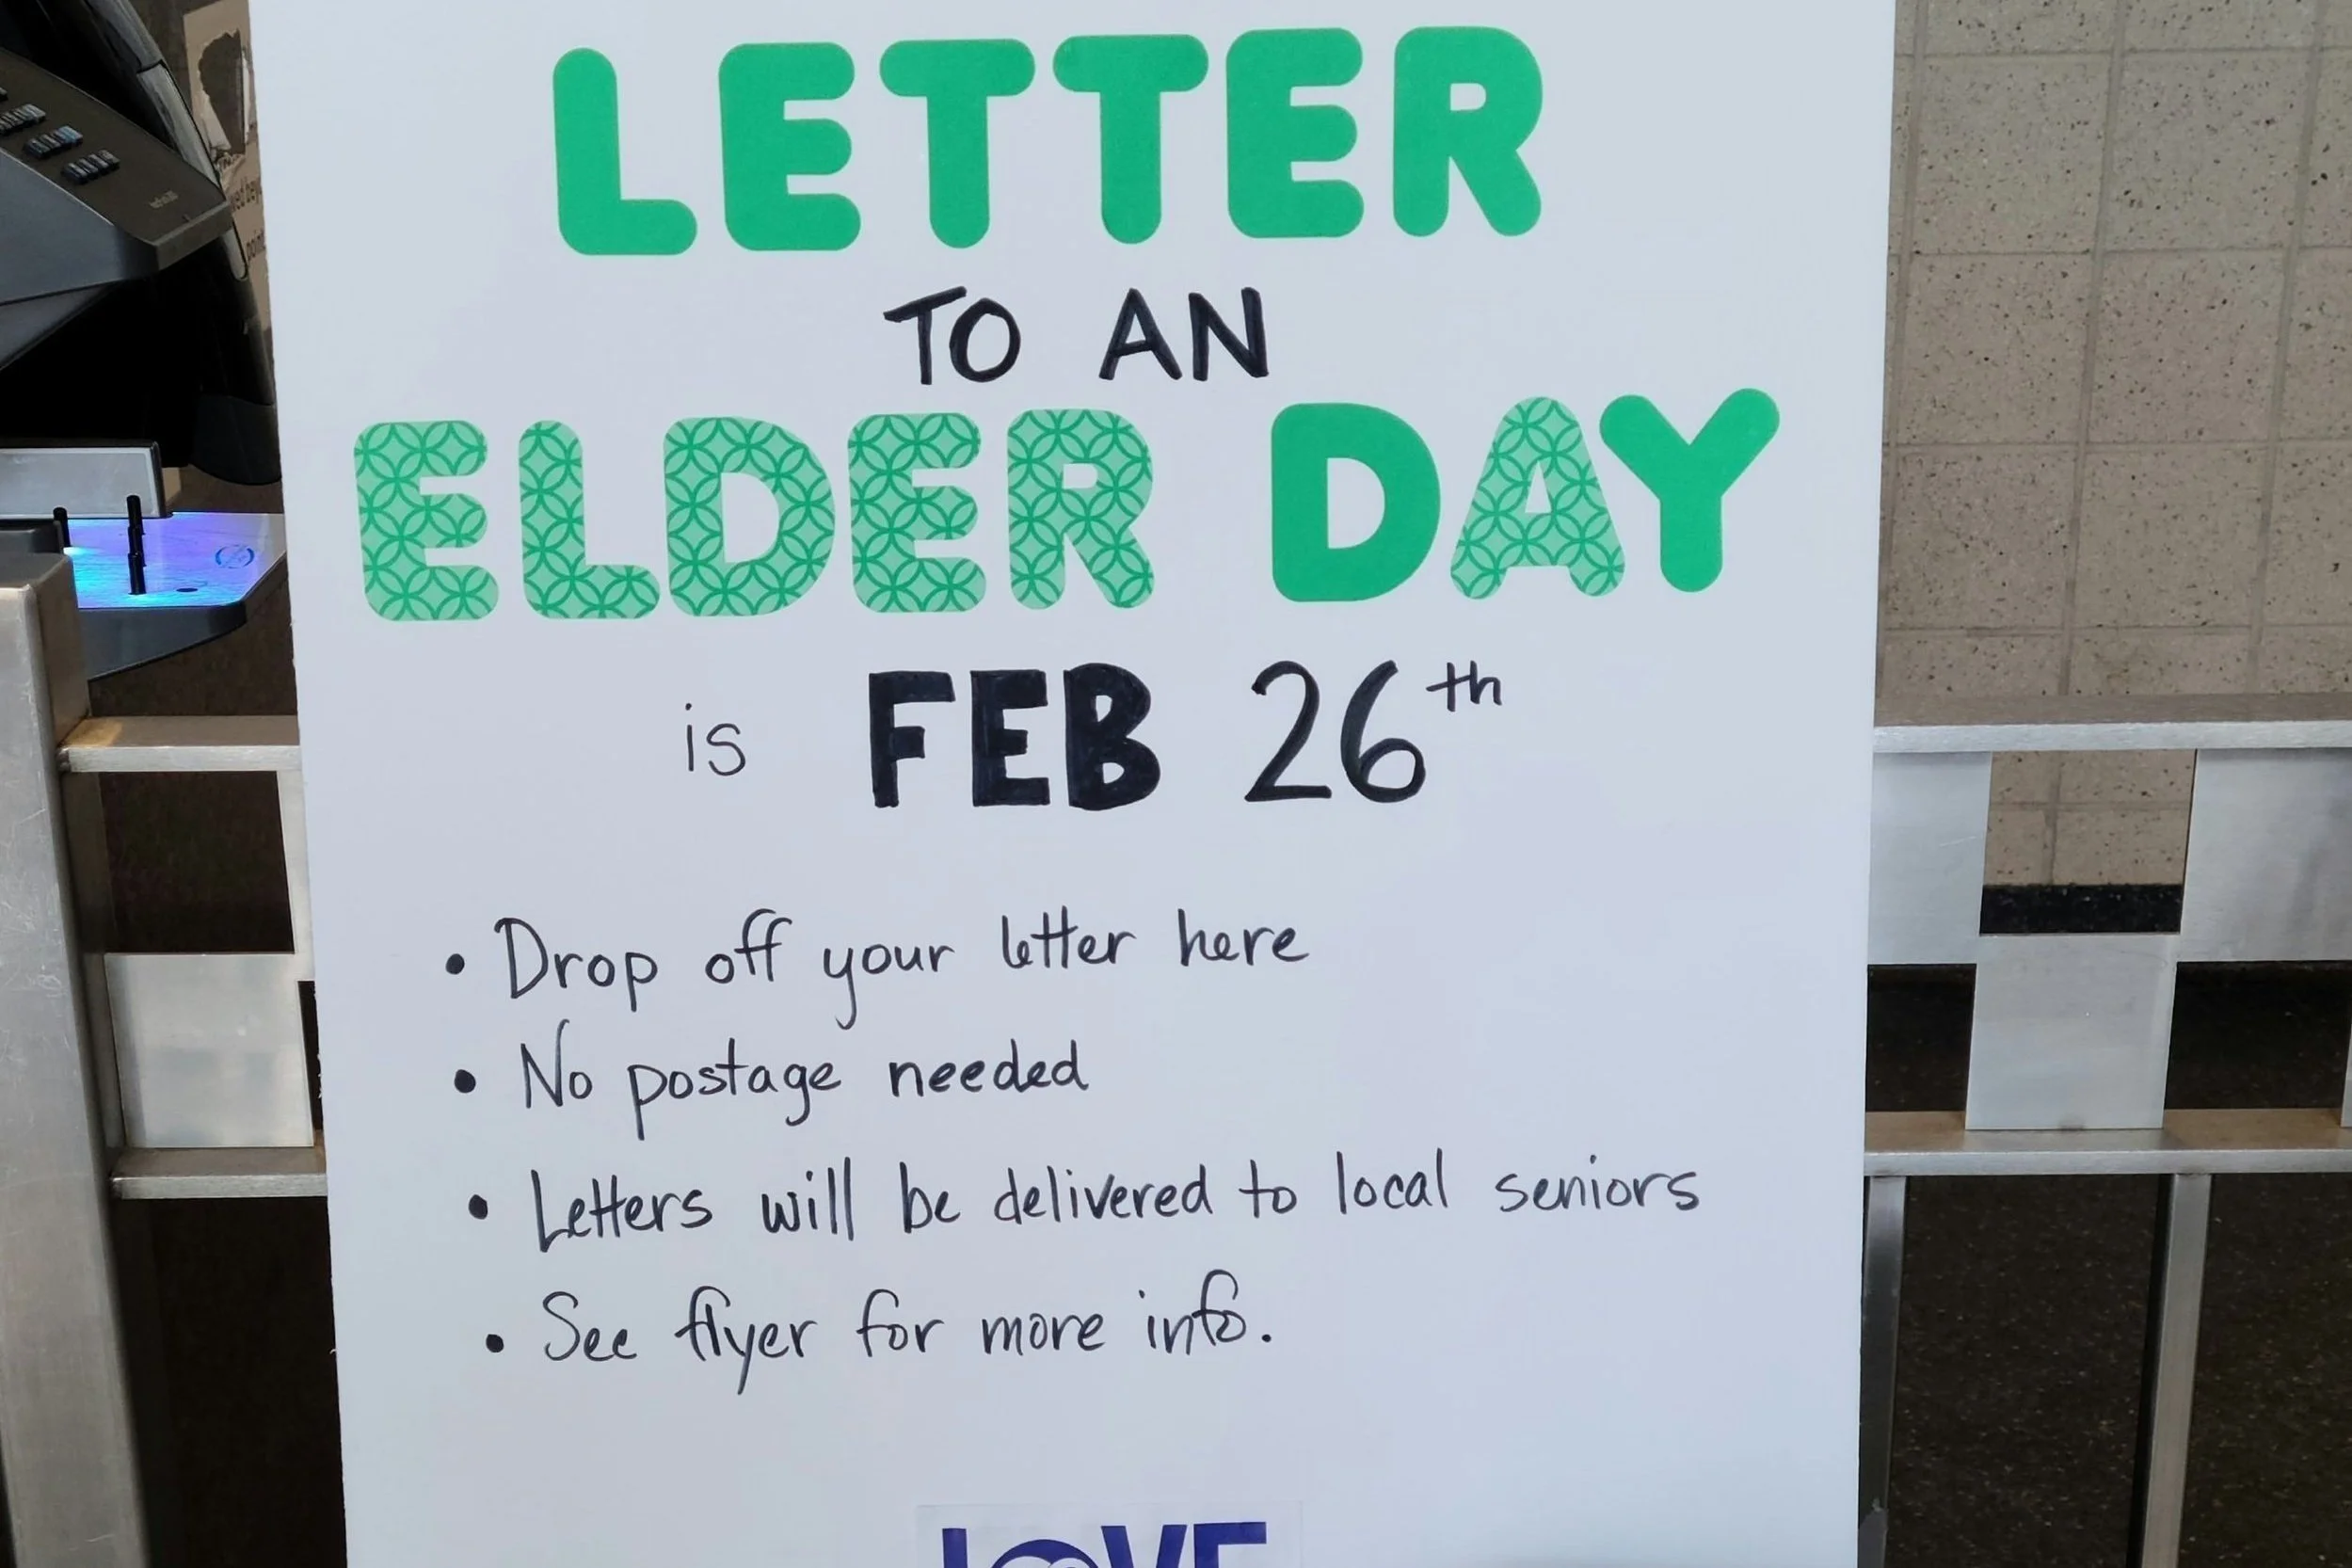 LETTER
TO AN
ELDER DAY
is FEB 26th
• Drop off your letter here
• No postage needed
• Letters will be delivered to local seniors
• See flyer for more info.
LOVE